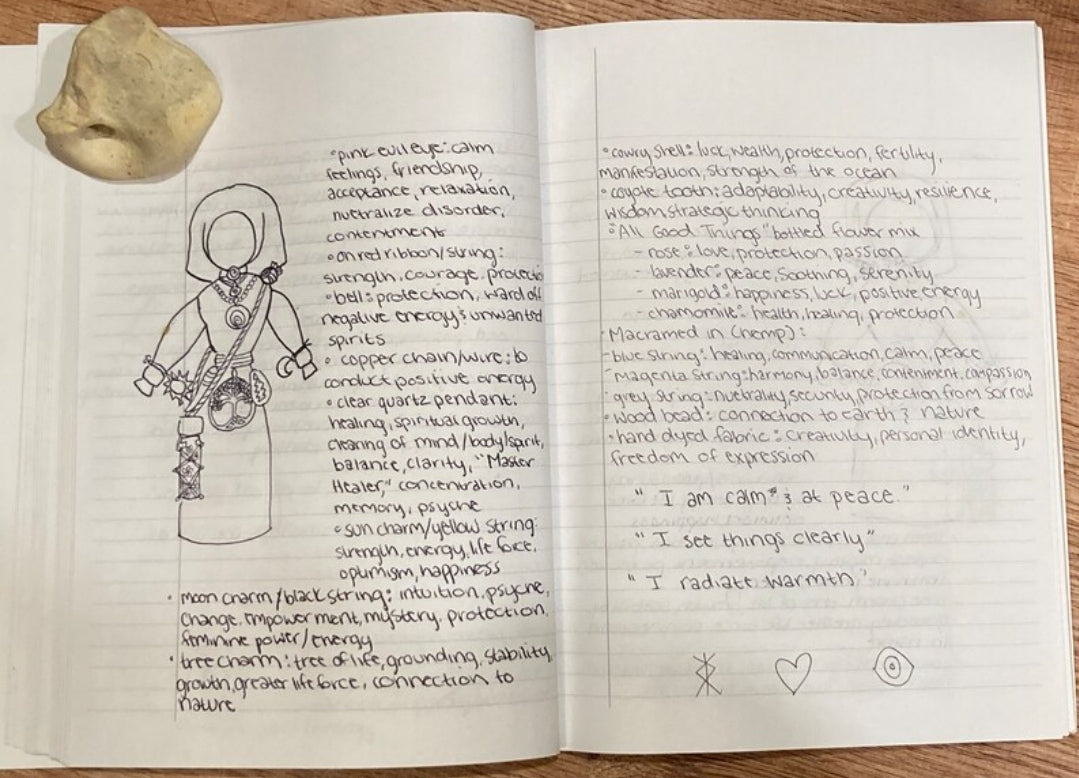 •pink evil eye: calm
feelings, friendship,
acceptance, relaxation,
nuetralize disorder,
contentment
•on red ribbon/string:
strength, courage, protectio
•bell: protection, ward off
negative energy & unwanted
spirits
• copper chain/wire: to
conduct positive energy
•clear quartz pendant:
healing, spiritual growth,
clearing of mind/body/spirit,
balance, clarity, "Master
Healer," concentration,
memory, psyche
•sun charm/yellow string:
strength, energy, life force,
optimism, happiness
• moon charm/black string: intuition, psyche,
change, empowerment, mystery, protection,
feminine power/energy
• tree charm: tree of life, grounding, stability,
growth, greater life force, connection to
nature
•cowry shell: luck, wealth, protection, fertility,
manifestation, strength of the ocean
•coyote tooth: adaptability, creativity, resilience,
wisdom, strategic thinking
•"All Good Things" bottled flower mix
- rose: love, protection, passion
- lavender: peace, soothing, serenity
- marigold: happiness, luck, positive energy
- chamomile: health, healing, protection
•Macramed in (hemp):
-blue string: healing, communication, calm, peace
-magenta string: harmony, balance, contentment, compassion
-grey string: nuetrality, security, protection from sorrow
•wood bead: connection to earth & nature
•hand dyed fabric: creativity, personal identity,
freedom of expression
"I am calm & at peace."
"I see things clearly"
"I radiate warmth"